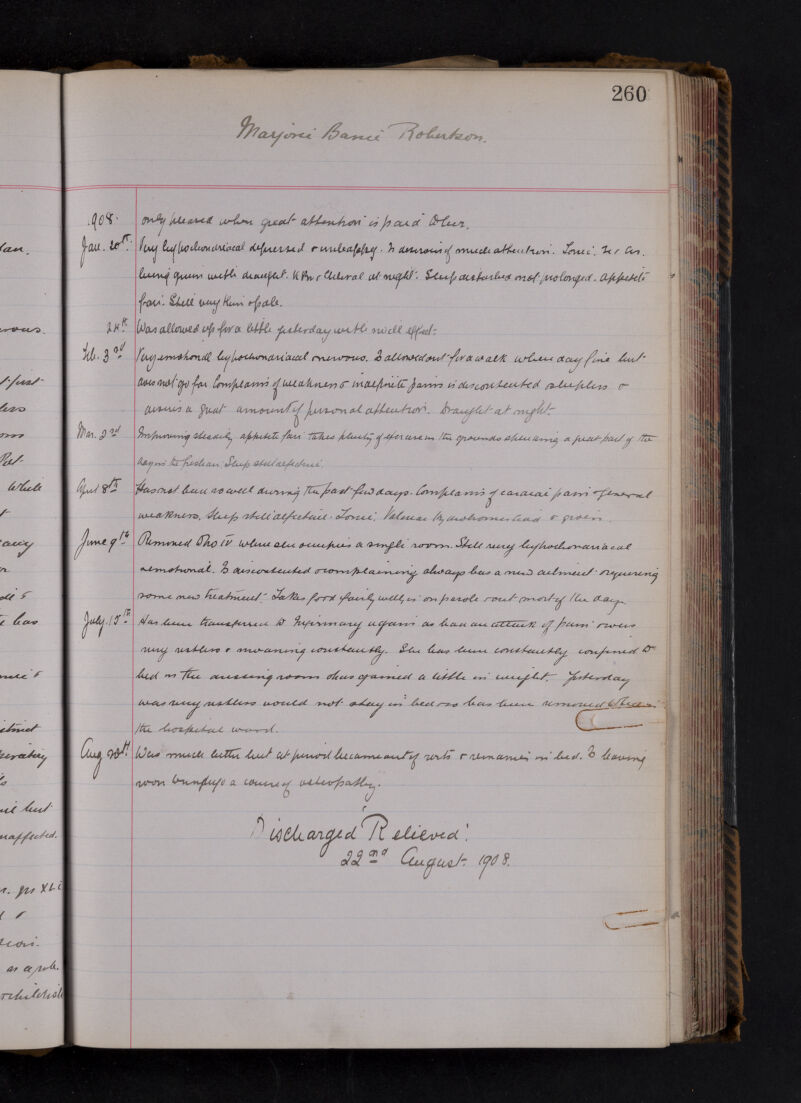 260
Marjorie Barrie Robertson.
1908. only pleased when great attention is paid to her.
Jan. 20th. Very hypochondriacal depressed & unhappy. Is desirous of much attention. Tonic.
being given with draught. & Chloral at night. Sleep disturbed & not prolonged. Appetite
fair. Still very thin & pale.
24th Was allowed up for a little yesterday with no ill effect.
Feb. 3rd Very emotional hypochondriacal & nervous. Is allowed out for a walk when day fine but
does not go far. Complains of weakness & indefinite pains is discontented sleepless &
desires a great amount of personal attention. Draught at night.
Mar. 2nd Improving steadily appetite fair takes plenty of exercise in the grounds spending a great part of the
day in the fresh air. Sleep still defective.
April 8th Has not been so well during the past few days. Complains of cardiac pain & general
weakness. Sleep still defective. Tonic, Valerian given.
June 9th Removed to No IV where she occupies a single room. Still very hypochondriacal
& emotional. Is discontented & complaining always has a new ailment requiring
some new treatment. Takes food fairly well, is on parole & out most of the day.
July 15th Has been transferred to Infirmary again as had an attack of pain & was
very restless & moaning constantly. She has been constantly confined to
bed in the dressing room & has gained a little in weight. Yesterday
was very restless would not stay in bed & so has been removed
the hospital ward.
Aug Was much better but at period became out of sorts & remained in bed. Is leaving
soon to undergo a course of osteopathy.
Discharged "Relieved".
22nd August 1908.